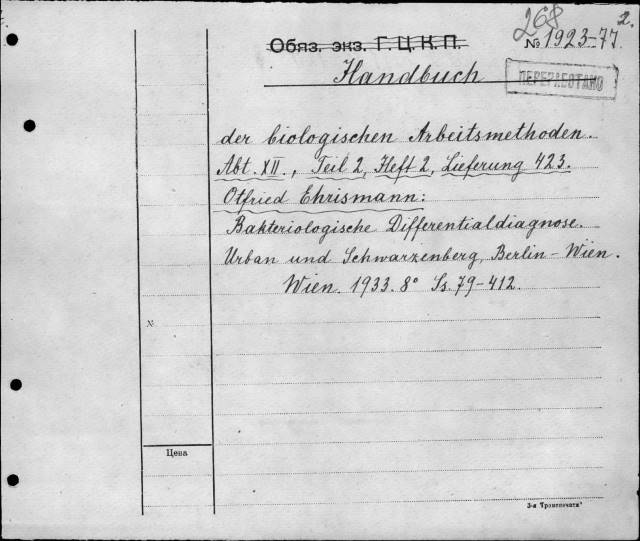 268 2.
Обяз. экз. Г.Ц.К.П. № 1923-77
Handbuch
ПЕРЕРАБОТАНО
der biologischen Arbeitsmethoden.
Abt. XII., Teil 2, Heft 2, Lieferung 423.
Otfried Ehrismann:
Bakteriologische Differentialdiagnose.
Urban und Schwarzenberg, Berlin-Wien.
Wien. 1933. 8° Ss. 79-412.
№
Цена
3-я Транспечати